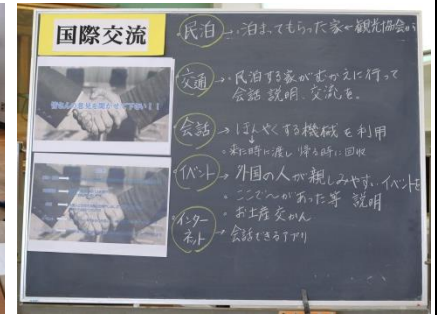 国際交流
皆さんの意見を聞かせて下さい!!
民泊 → ・泊まってもらった家や観光協会から
交通 → ・民泊する家がむかえに行って
会話 説明、交流を。
会話 → ほんやくする機械を利用
・来た時に渡し 帰る時に回収
イベント → 外国の人が親しみやすいイベントを
・ここで〜があった等 説明
・お土産交かん
インターネット → 会話できるアプリ